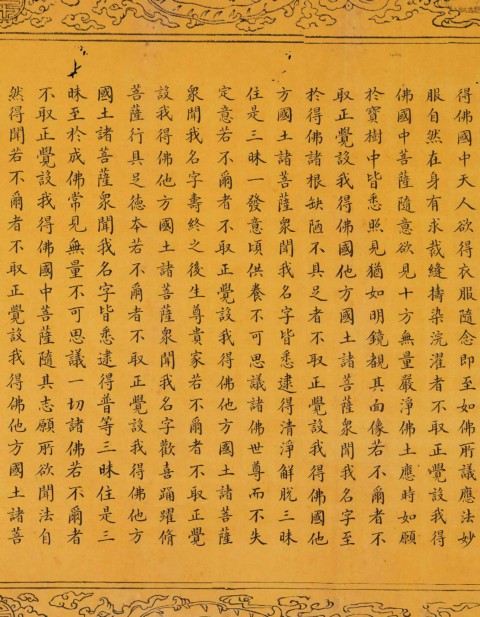 得佛國中天人欲得衣服隨念即至如佛所議應法妙
服自然在身有求裁縫擣染浣濯者不取正覺設我得
佛國中菩薩隨意欲見十方無量嚴淨佛土應時如願
於寶樹中皆悉照見猶如明鏡覩其面像若不爾者不
取正覺設我得佛國他方國土諸菩薩衆聞我名字至
於得佛諸根缺陋不具足者不取正覺設我得佛國他
方國土諸菩薩衆聞我名字皆悉逮得清淨解脫三昧
住是三昧一發意頃供養不可思議諸佛世尊而不失
定意若不爾者不取正覺設我得佛他方國土諸菩薩
衆聞我名字壽終之後生尊貴家若不爾者不取正覺
設我得佛他方國土諸菩薩衆聞我名字歡喜踊躍脩
菩薩行具足德本若不爾者不取正覺設我得佛他方
國土諸菩薩衆聞我名字皆悉逮得普等三昧住是三
昧至於成佛常見無量不可思議一切諸佛若不爾者
不取正覺設我得佛國中菩薩隨其志願所欲聞法自
然得聞若不爾者不取正覺設我得佛他方國土諸菩